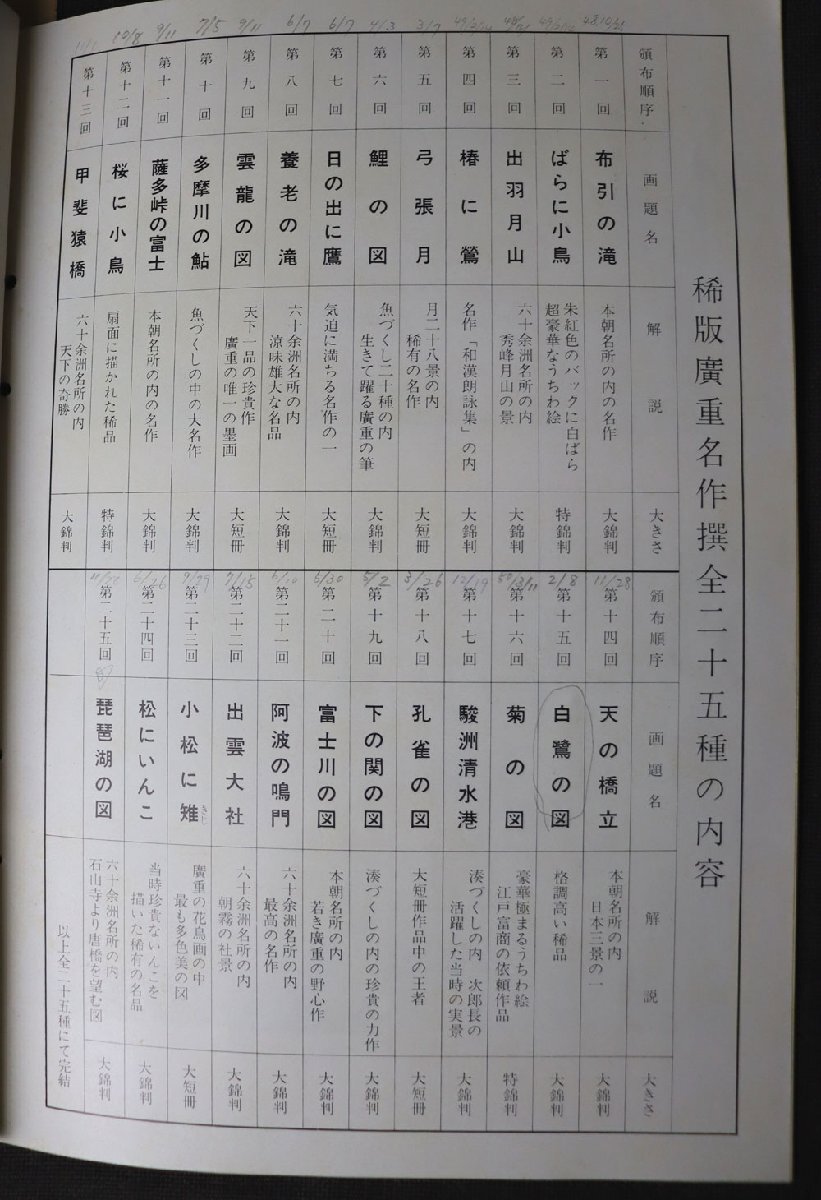 稀版廣重名作撰全二十五種の内容
頒布順序 画題名 解説 大きさ
48.10/25
第一回 布引の滝 本朝名所の内の名作 大錦判
第二回 ばらに小鳥 朱紅色のバックに白ばら
超豪華なうちわ絵 特錦判
第三回 出羽月山 六十余洲名所の内
秀峰月山の景 大錦判
第四回 椿に鶯 名作「和漢朗詠集」の内 大錦判
3/7
第五回 弓張月 月二十八景の内
稀有の名作 大短冊
4/3
第六回 鯉の図 魚づくし二十種の内
生きて躍る廣重の筆 大錦判
6/7
第七回 日の出に鷹 気迫に満ちる名作の一 大短冊
6/7
第八回 養老の滝 六十余洲名所の内
涼味雄大な名品 大錦判
第九回 雲龍の図 天下一品の珍貴作
廣重の唯一の墨画 大短冊
7/5
第十回 多摩川の鮎 魚づくしの中の大名作 大錦判
9/11
第十一回 薩多峠の富士 本朝名所の内の名作 大錦判
10/8
第十二回 桜に小鳥 扇面に描かれた稀品 特錦判
第十三回 甲斐猿橋 六十余洲名所の内
天下の奇勝 大錦判
頒布順序 画題名 解説 大きさ
11/28
第十四回 天の橋立 本朝名所の内
日本三景の一 大錦判
2/8
第十五回 白鷺の図 格調高い稀品 大錦判
第十六回 菊の図 豪華極まるうちわ絵
江戸富商の依頼作品 特錦判
12/19
第十七回 駿洲清水港 湊づくしの内 次郎長の
活躍した当時の実景 大錦判
3/26
第十八回 孔雀の図 大短冊作品中の王者 大短冊
5/2
第十九回 下の関の図 湊づくしの内の珍貴の力作 大錦判
6/30
第二十回 富士川の図 本朝名所の内
若き廣重の野心作 大錦判
6/10
第二十一回 阿波の鳴門 六十余洲名所の内
最高の名作 大錦判
7/15
第二十二回 出雲大社 六十余洲名所の内
朝霧の社景 大錦判
9/29
第二十三回 小松に雉 きじ 廣重の花鳥画の中
最も多色美の図 大短冊
6/26
第二十四回 松にいんこ 当時珍貴ないんこを
描いた稀有の名品 大錦判
第二十五回 琵琶湖の図 六十余洲名所の内
石山寺より唐橋を望む図 大錦判
以上全二十五種にて完結